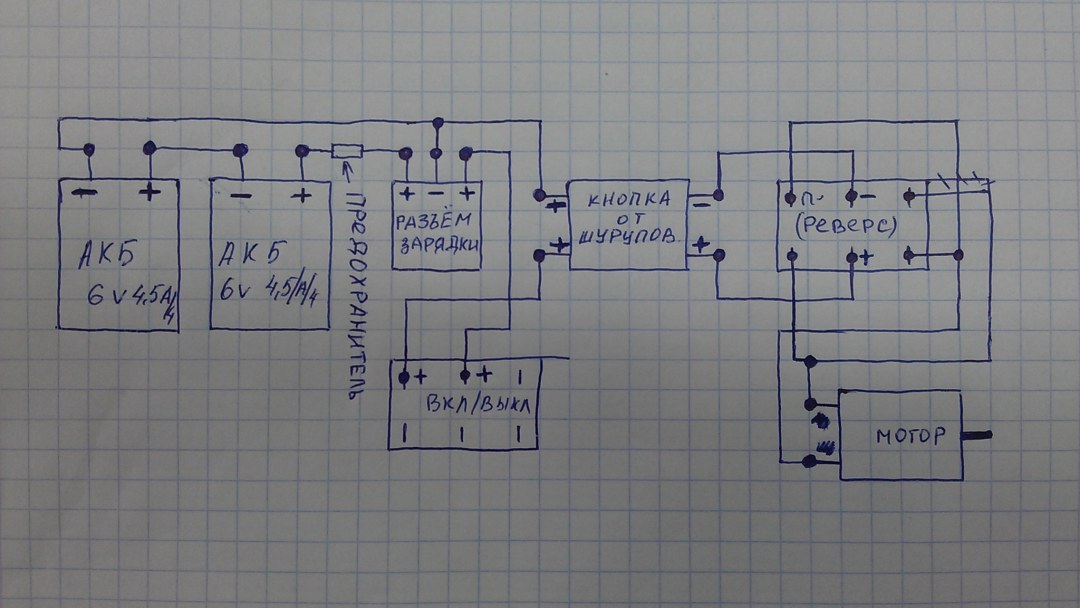 - +
АКБ
6v 4.5А/ч
- +
АКБ
6v 4,5/А/ч
ПРЕДОХРАНИТЕЛЬ
+ - +
РАЗЪЁМ
ЗАРЯДКИ
+ + -
ВКЛ/ВЫКЛ
КНОПКА
ОТ
ШУРУПОВ.
+
-
+
-
(РЕВЕРС)
+
МОТОР